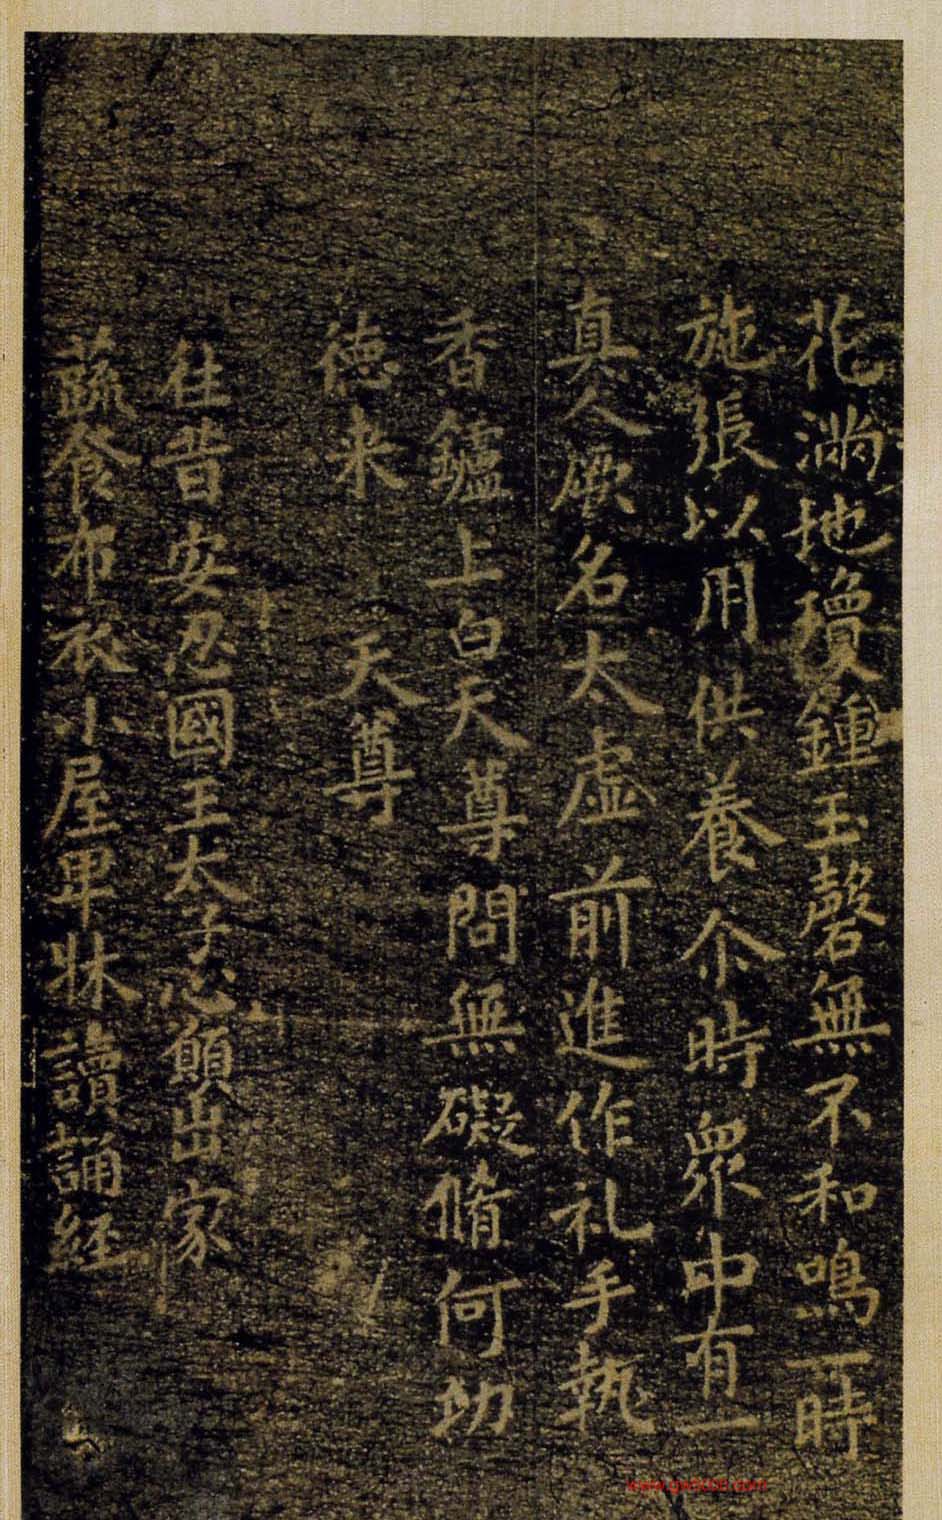 花滿地瓊鍾玉磬無不和鳴一時
施張以用供養尒時眾中有一
真人厥名太虛前進作礼手執
香鑪上白天尊問無礙脩何功
德来 天尊
往昔安忍國王太子心願出家
蔬食布衣小屋卑牀讀誦經